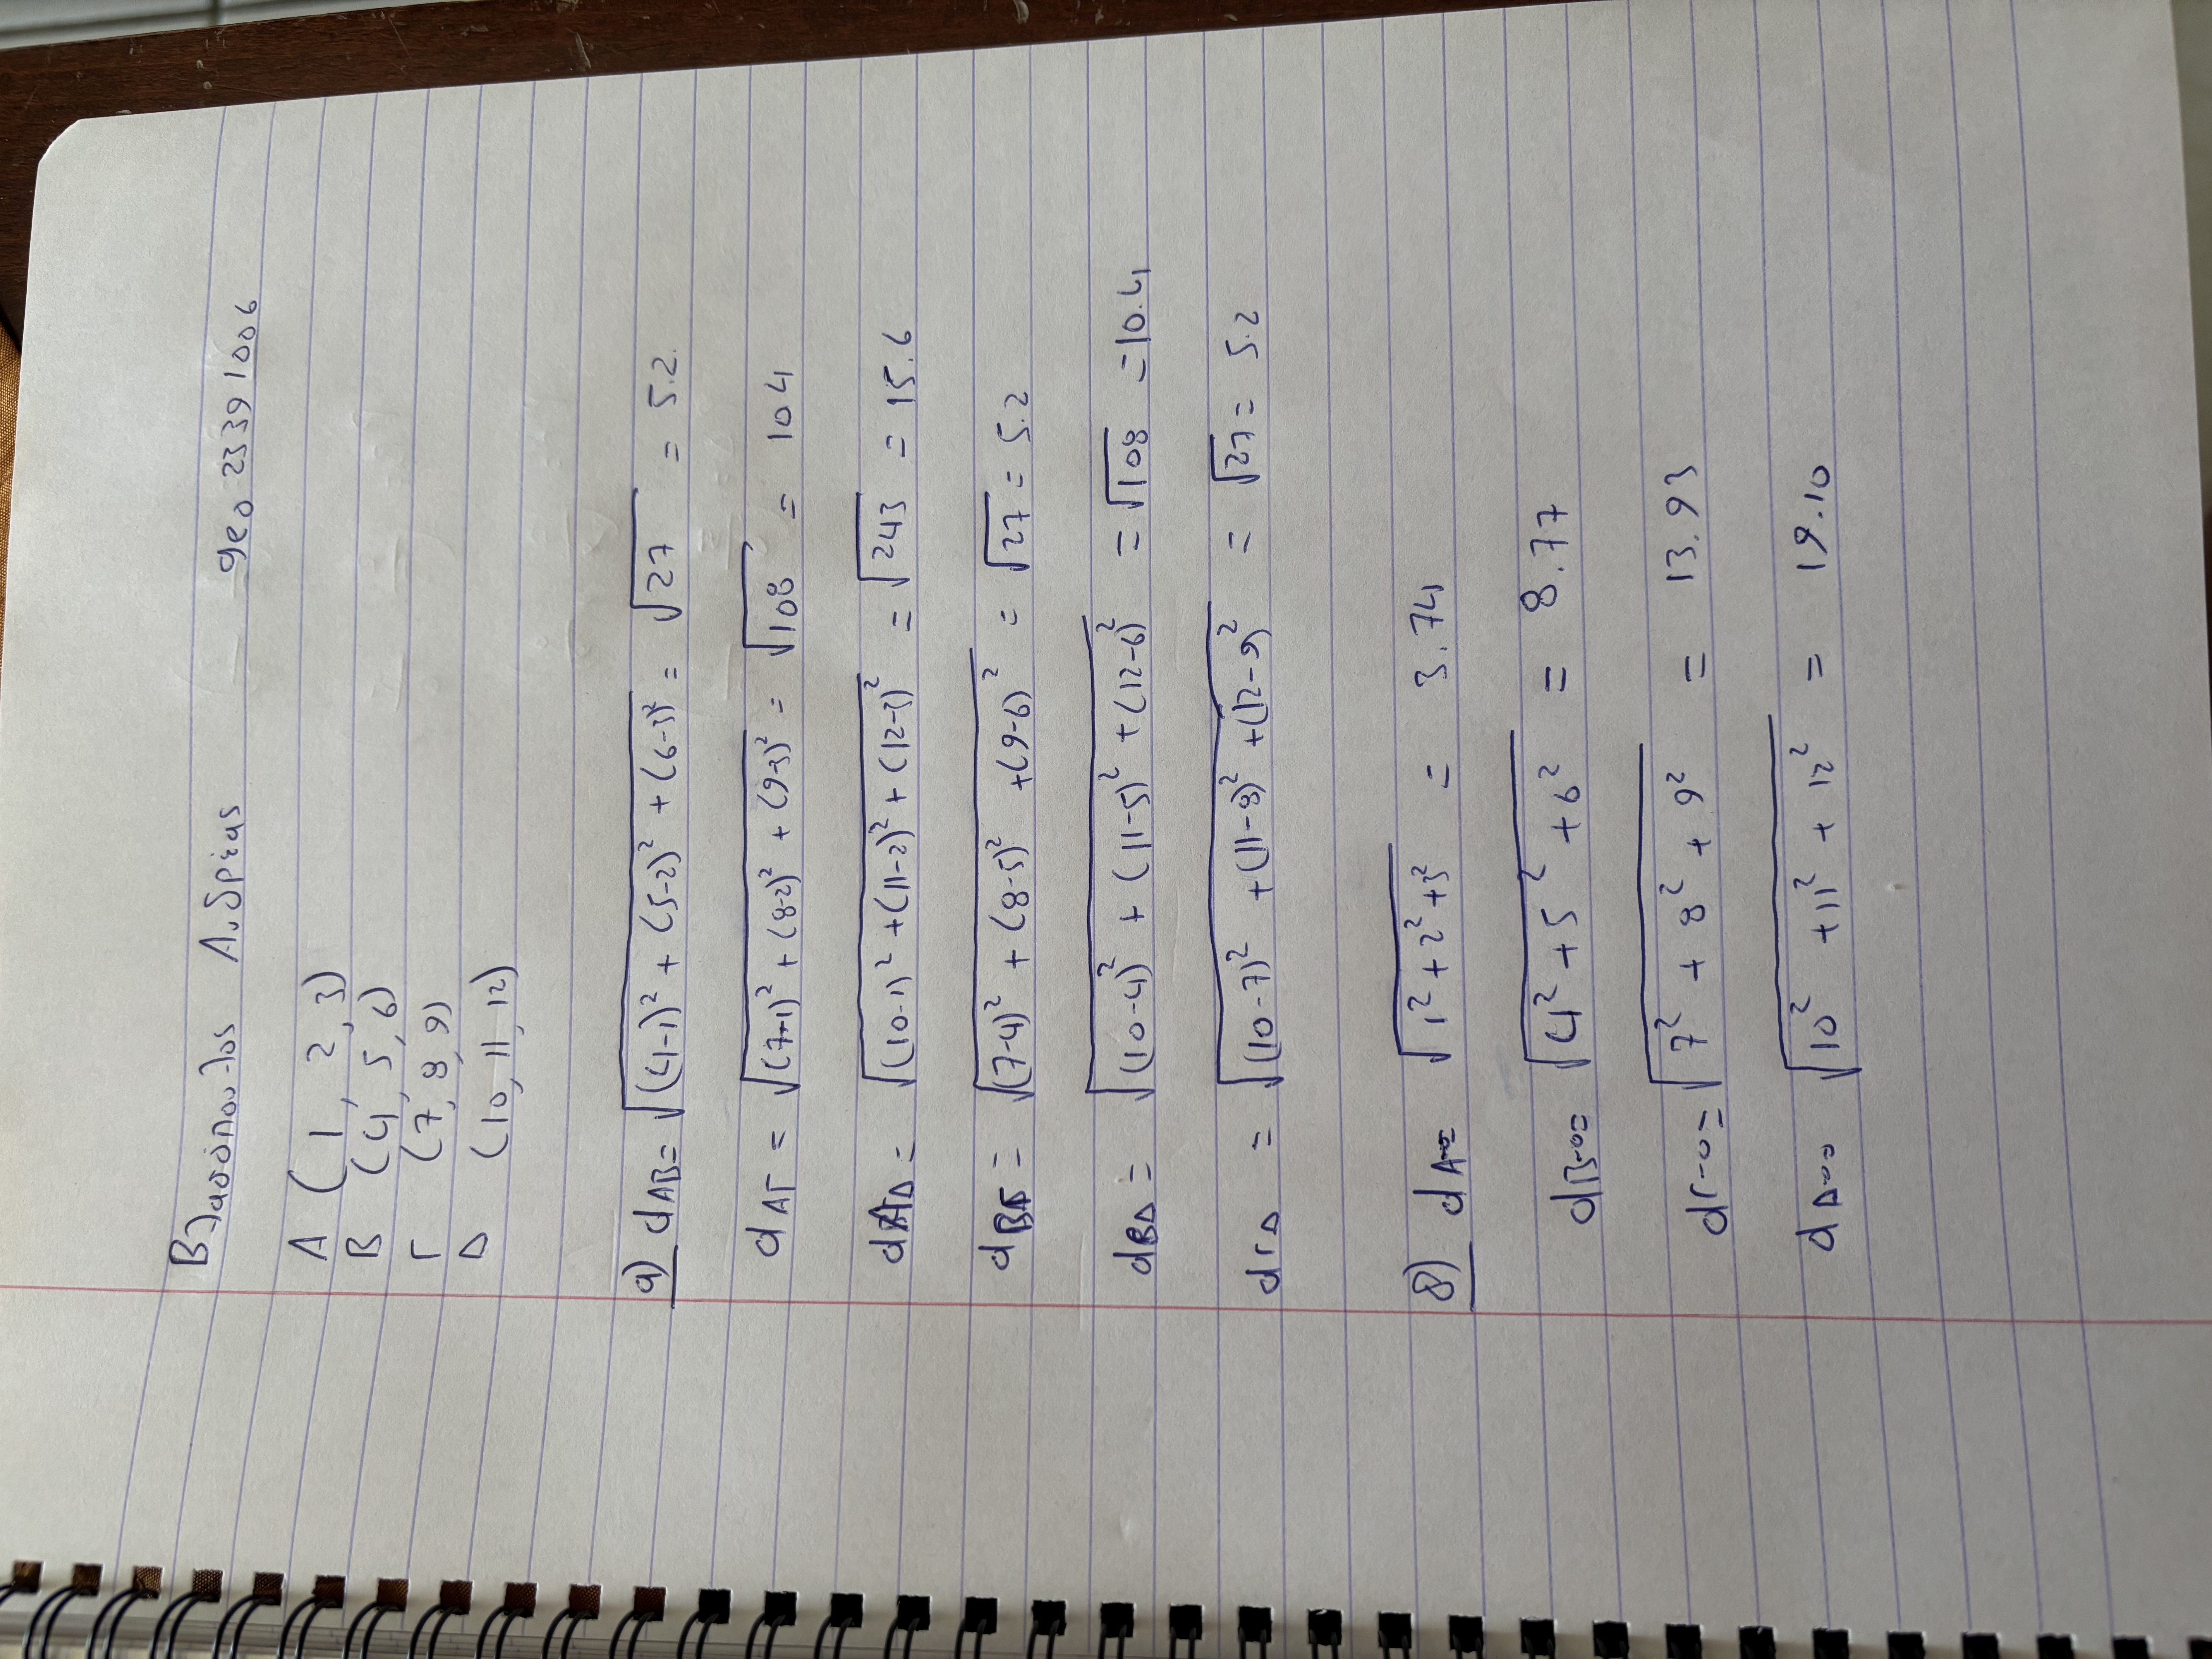 Βλασόπουλος Ανδρέας geo 23391006
Α (1, 2, 3)
Β (4, 5, 6)
Γ (7, 8, 9)
Δ (10, 11, 12)
α) dΑΒ = √(4-1)² + (5-2)² + (6-3)² = √27 = 5.2.
dΑΓ = √(7-1)² + (8-2)² + (9-3)² = √108 = 104
dΑΔ = √(10-1)² + (11-2)² + (12-3)² = √243 = 15.6
dΒΓ = √(7-4)² + (8-5)² + (9-6)² = √27 = 5.2
dΒΔ = √(10-4)² + (11-5)² + (12-6)² = √108 = 10.4
dΓΔ = √(10-7)² + (11-8)² + (12-9)² = √27 = 5.2
β) dΑ-0= √1² + 2² + 3² = 3.74
dΒ-0= √4² + 5² + 6² = 8.77
dΓ-0= √7² + 8² + 9² = 13.93
dΔ-0= √10² + 11² + 12² = 19.10